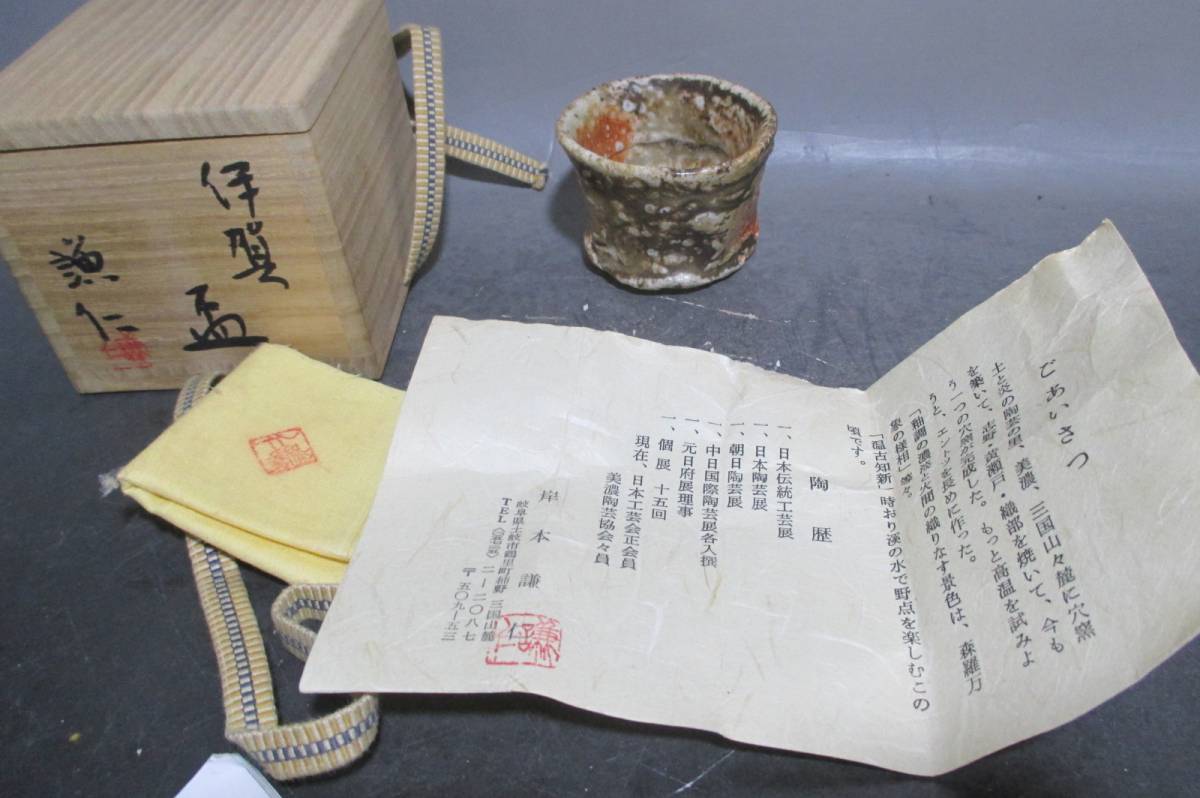 伊賀
盃
謙仁
ごあいさつ
土と炎の陶芸の里、美濃、三国山々麓に穴窯
を築いて、志野・黄瀬戸・織部を焼いて、今も
う一つの穴窯が完成した。もっと高温を試みよ
うと、エントツを長めに作った。
「釉調の濃淡と火間の織りなす景色は、森羅万
象の様相」等々。
「温古知新」時おり渓の水で野点を楽しむこの
頃です。
陶歴
一、日本伝統工芸展
一、日本陶芸展
一、朝日陶芸展
一、中日国際陶芸展各入撰
一、元日府展理事
一、個展 十五回
現在、日本工芸会正会員
美濃陶芸協会々員
岸本謙仁
岐阜県土岐市鶴里町柿野 三国山麓
TEL 二一二〇八七
〒五〇九ー五三
謙仁